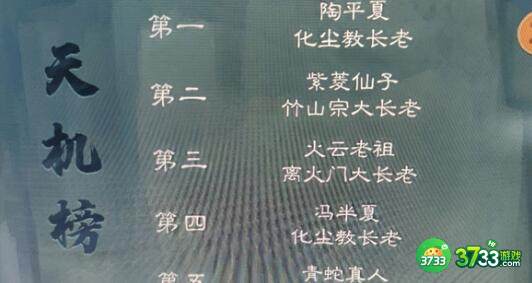 天机榜
第一
陶平夏
化尘教长老
第二
紫菱仙子
竹山宗大长老
第三
火云老祖
离火门大长老
第四
冯半夏
化尘教长老
第五
青蛇真人
3733
3733游戏
.com